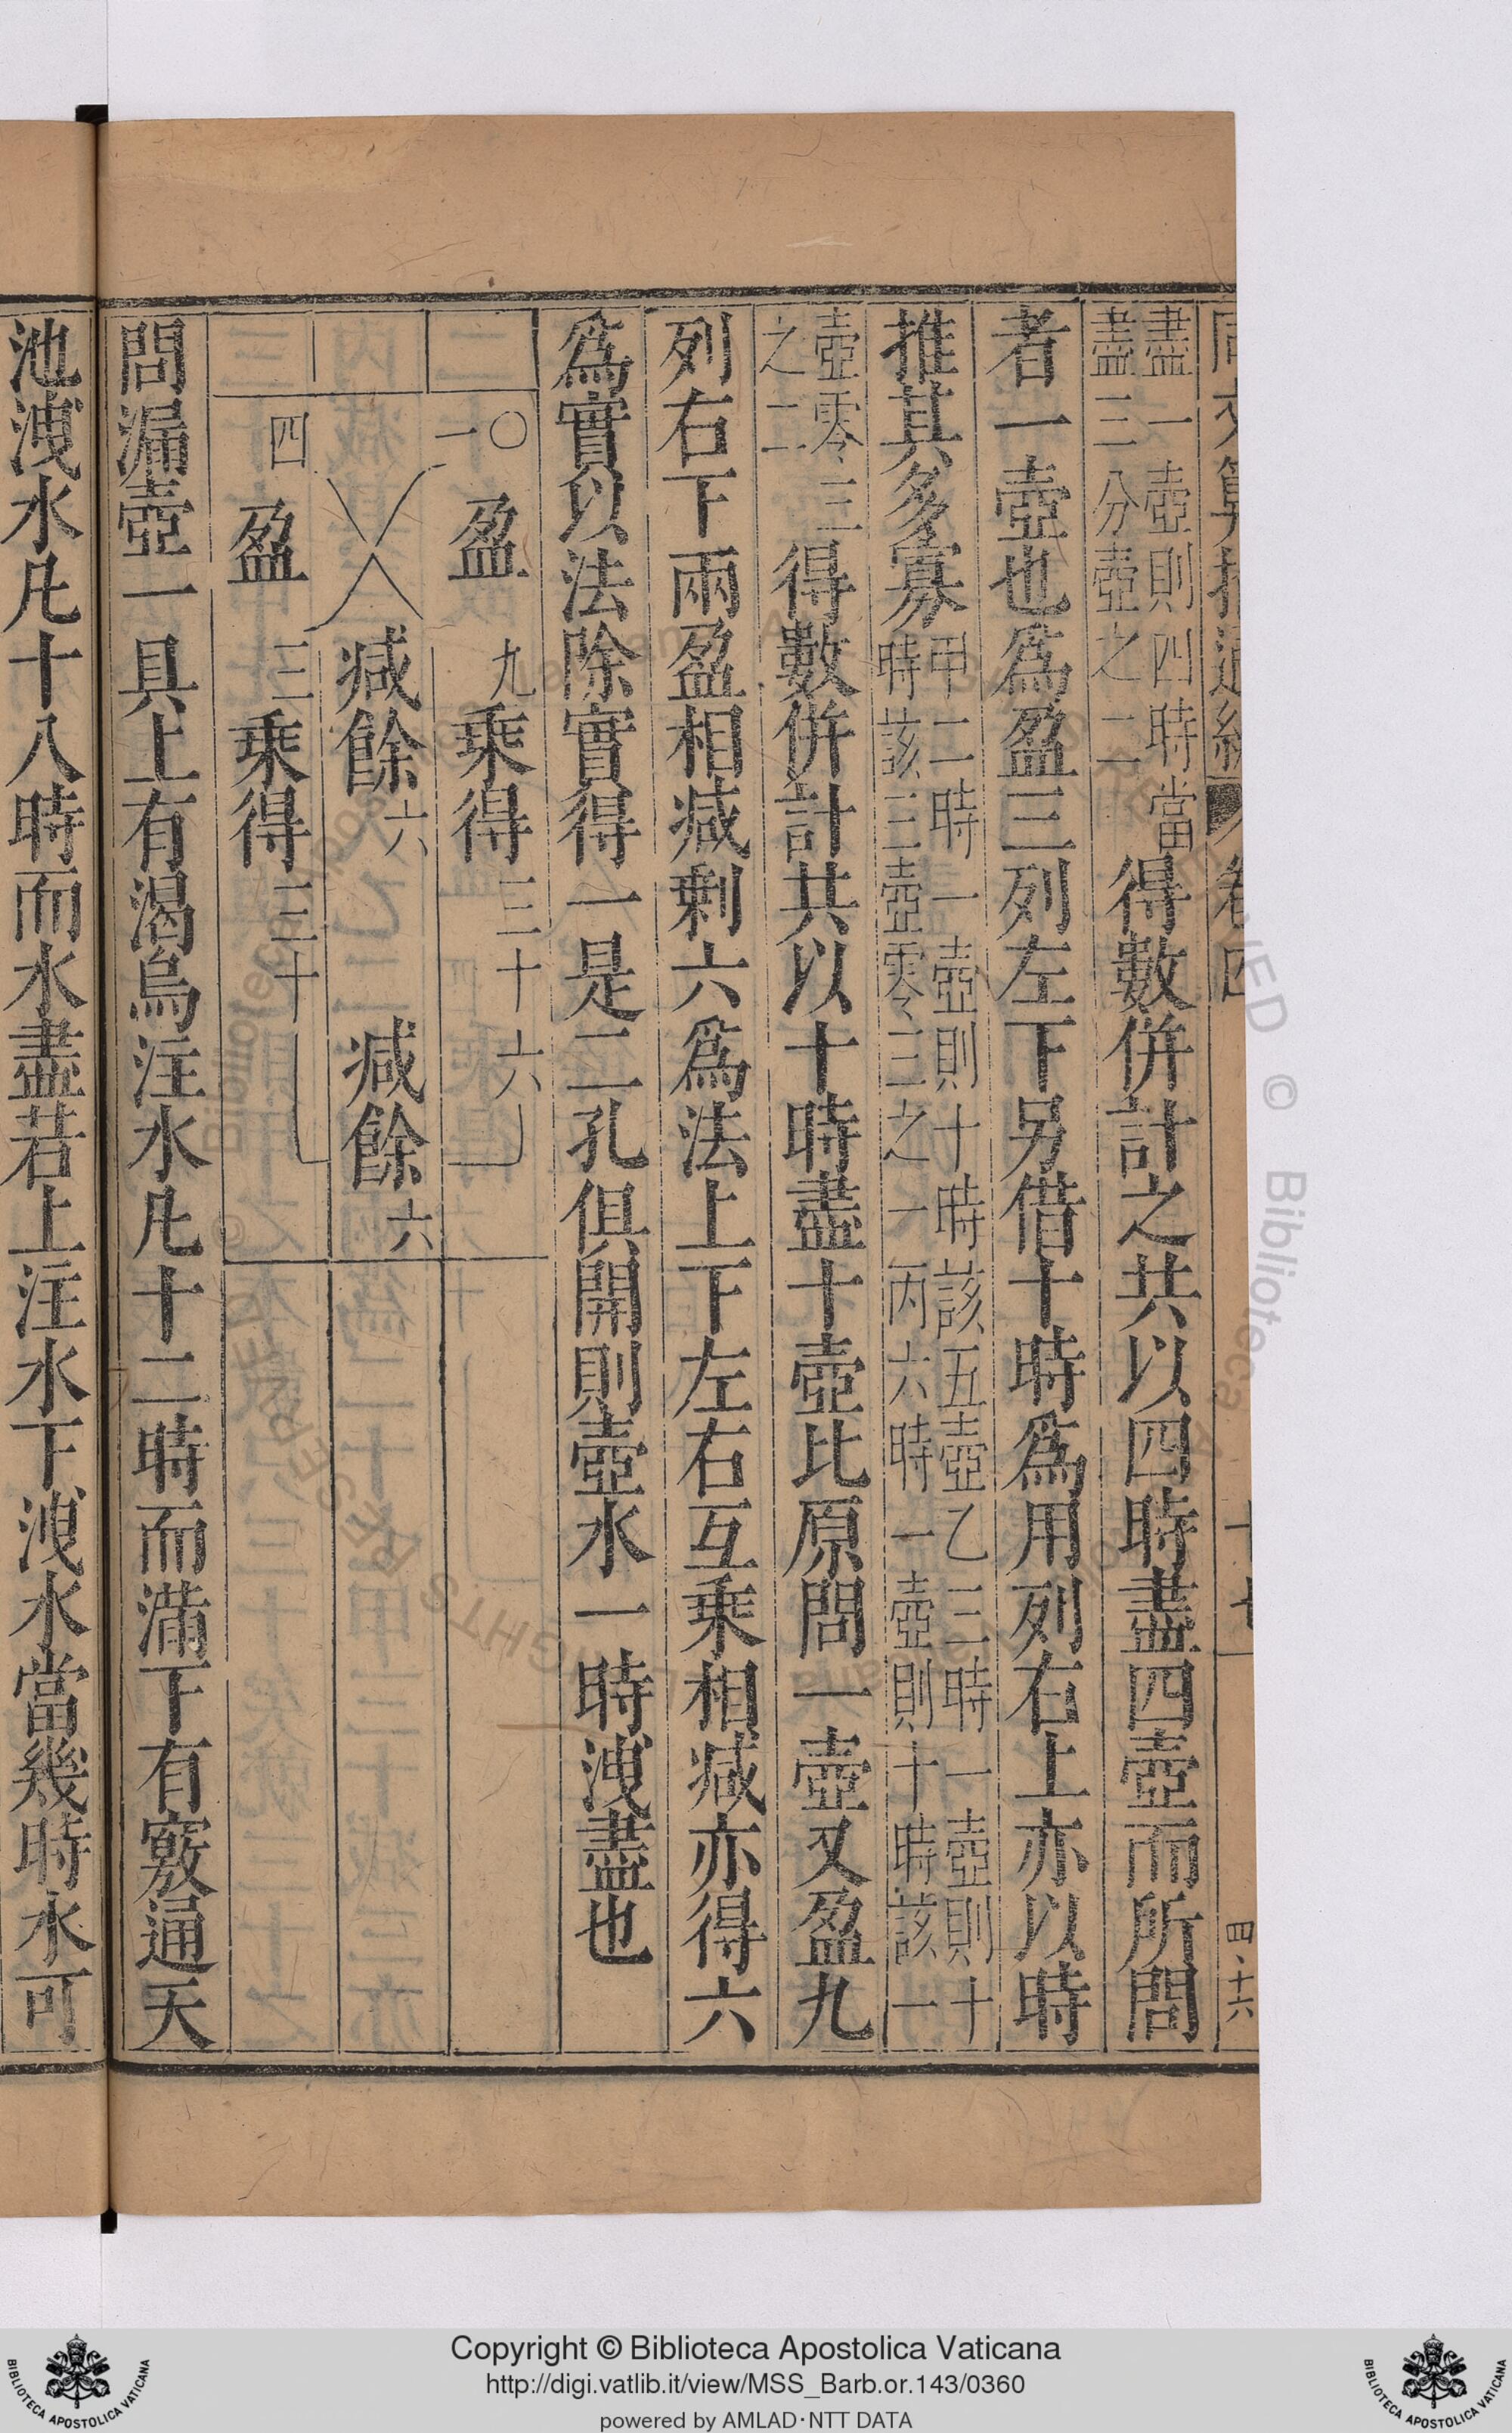 盡一壺則四時當
盡三分壺之二
得數併計之共以四時盡四壺而所問
者一壺也爲盈三列左下另借十時爲用列右上亦以時
推其多寡
甲二時一壺則十時該五壺乙三時一壺則十
時該三壺零三之一丙六時一壺則十時該一
壺零三
之二
得數併計共以十時盡十壺比原問一壺又盈九
列右下兩盈相减剩六爲法上下左右互乘相减亦得六
爲實以法除實得一是二孔俱開則壺水一時洩盡也
一〇 盈 九 乘得 三十六
减餘 六 减餘 六
四 盈 三 乘得 三十
問漏壺一具上有渴烏注水凡十二時而滿下有竅通天
池洩水凡十八時而水盡若上注水下洩水當幾時水可
卷四
十七
四·十六
Copyright © Biblioteca Apostolica Vaticana
http://digi.vatlib.it/view/MSS_Barb.or.143/0360
powered by AMLAD·NTT DATA
BIBLIOTECA APOSTOLICA VATICANA
BIBLIOTECA APOSTOLICA VATICANA